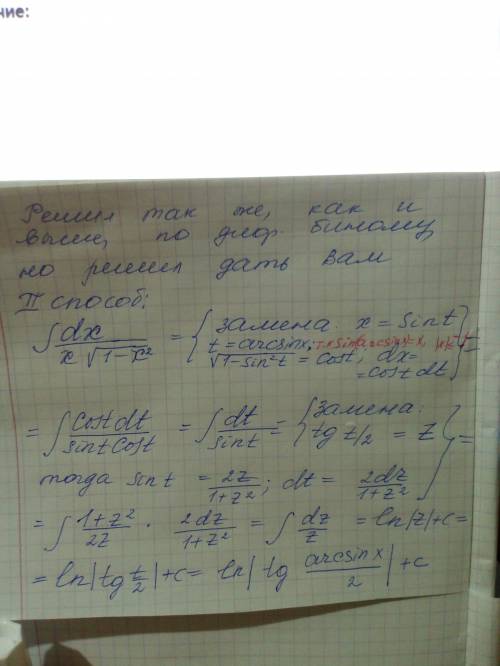 ние:
Решил так же, как и
выше, по диф. биному,
но решил дать Вам
II способ:
∫ dx / (x √(1-x²)) = { замена: x = sint
t = arcsinx; sin(arcsinx)=x,
√(1-sin²t) = cost; dx=
=cost dt } =
= ∫ cost dt / (sint cost) = ∫ dt / sint = { замена:
tg t/2 = z
тогда sint = 2z / (1+z²); dt = 2dz / (1+z²) } =
= ∫ (1+z²) / 2z · 2dz / (1+z²) = ∫ dz / z = ln|z|+c=
= ln|tg t/2|+c= ln| tg arcsin x / 2 | +c